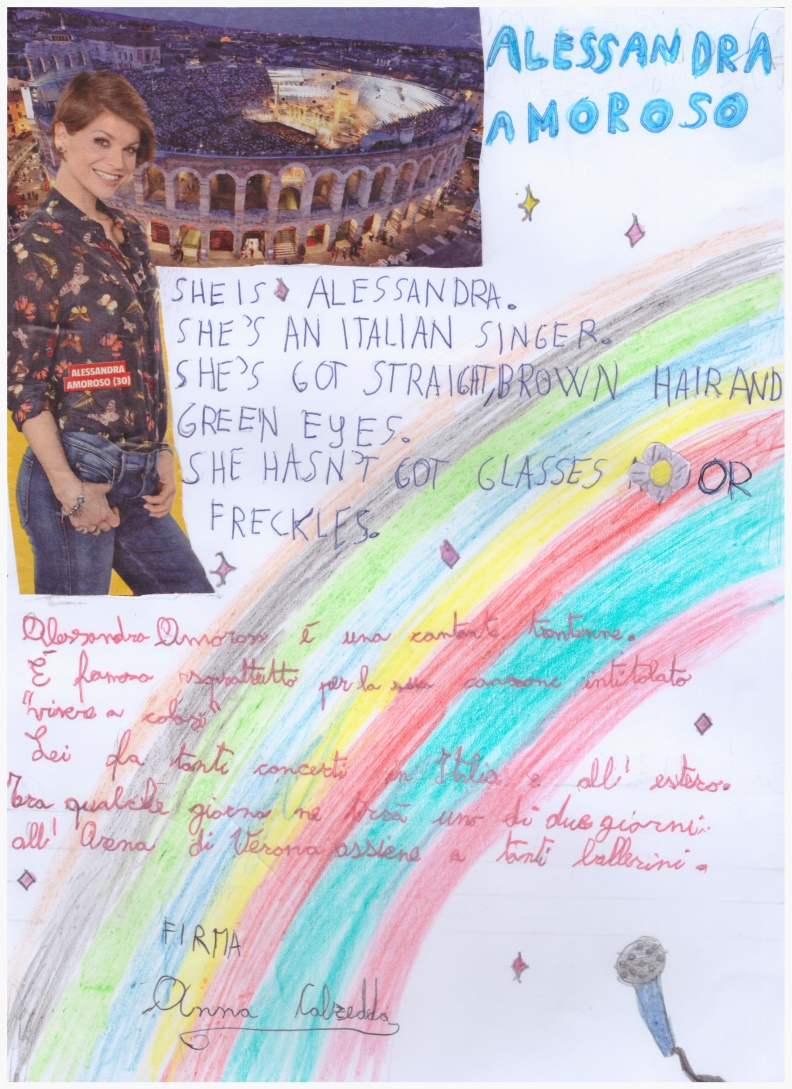 ALESSANDRA
AMOROSO
ALESSANDRA
AMOROSO (30)
SHE IS ALESSANDRA.
SHE'S AN ITALIAN SINGER.
SHE'S GOT STRAIGHT, BROWN HAIR AND
GREEN EYES.
SHE HASN'T GOT GLASSES OR
FRECKLES.
Alessandra Amoroso é una cantante
È famosa per la sua canzone intitolato
"vivere a colori"
Lei fa tanti concerti in Italia e all'estero.
Tra qualche giorno ne uno di due giorni
all'Arena di Verona assieme a tanti ballerini.
FIRMA
Anna